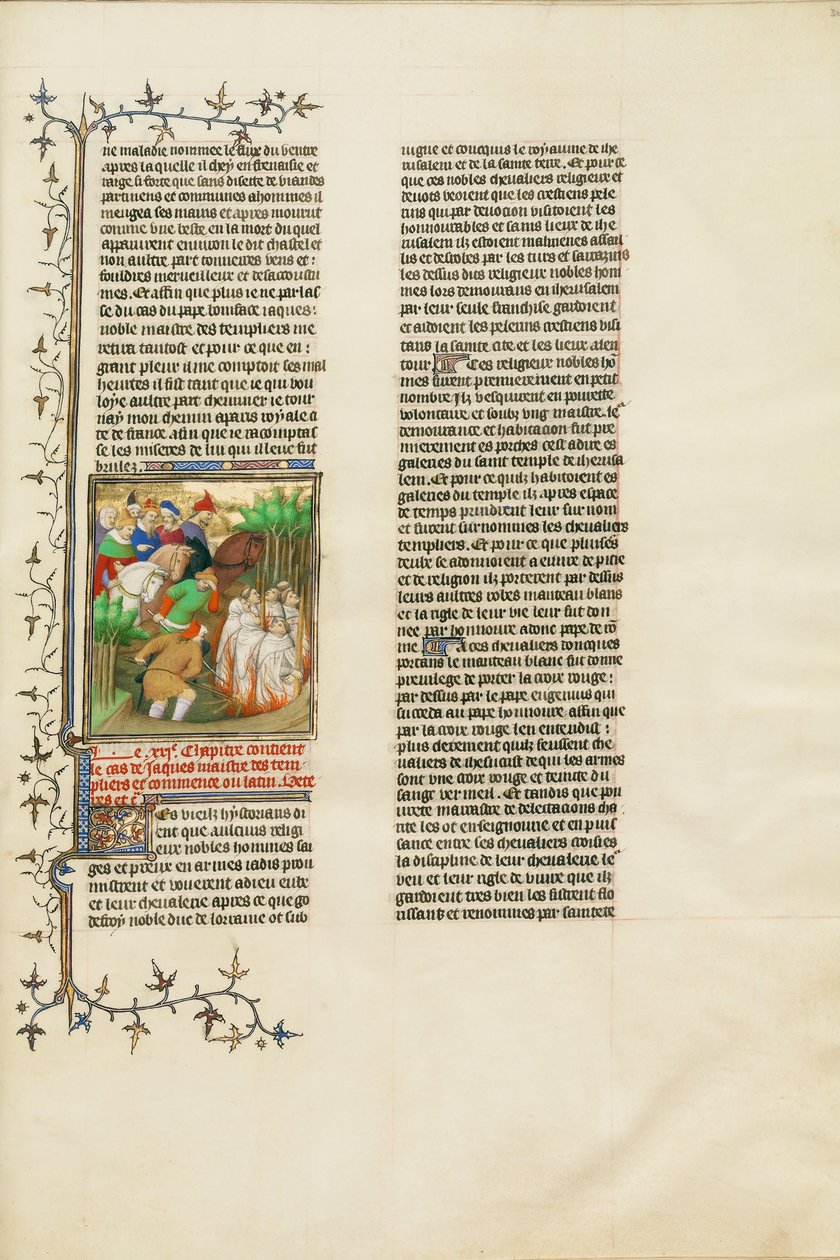 ne maladie nommee le flux du ventre
apres laquelle il chey en frenaisie et
rarge si forte que sans disette de viandes
partinens et communes a hommes il
mengea ses mains et apres mourut
comme une beste. en la mort du quel
apparurent environ le dit chastel et
non aultre part tonnerres vens et :
fouldres merveilleux et desacoustu
mes. Et affin que plus ie ne parlas
se du cas du pape boniface iaques :
noble maistre des templiers me
retira tantost et pour ce que en :
grant pleur il me comptoit ses mal
heurtes il fist tant que ie qui vou
loye aultre part cheminer ie tour
nay mon chemin a paris royale ci
te de france. afin que ie racomptas
se les miseres de lui qui illeuc fut
brulez.
Le .xxi.e Chapitre contient
le cas de Jaques maistre des tem-
pliers et commence ou latin. Vete
res et c.
Les vieilz hystorians di
ent que aulcuns religi
eux nobles hommes sai
ges et preux en armes iadis prou
mistrent et vouerent a dieu eulx
et leur chevalerie apres ce que go
defroy noble duc de lorraine ot sub
iugue et conquis le royaume de ihe
rusalem et de la sainte terre. Et pour ce
que ces nobles chevaliers religieux et
devots veoient que les crestiens pele
rins qui par devocion visitoient les
honnourables et sains lieux de ihe
rusalem ilz estoient malmenes assail
lis et desrobes par les turs et sarrazins
les dessus dits religieux nobles hom
mes lors demourans en iherusalem
par leur seule franchise gardoient
et aidoient les pelerins crestiens visi
tans la sainte cite. et les lieux alen
tour. Ces religieux nobles hõ
mes furent premierement en petit
nombre Ilz vesquirent en pourete
volontaire et soubz ung maistre. le
demourance et habitacion fut pre
mierement es porches cest a dire es
galeries du saint temple de iherusa
lem. Et pour ce quilz habitoient es
galeries du temple ilz apres espace
de temps prindrent leur surnom
et furent surnommes les chevaliers
templiers. Et pour ce que pluises
deulx se adonnoient a euvre de pitie
et de religion ilz porterent par dessus
leurs aultres robes manteau blans
et la rigle de leur vie leur fut don
nee par honnoure adonc pape de rõ
me. A ces chevaliers doncques
portans le manteau blanc fut donne
previlege de porter la croix rouge :
par dessus par le pape eugenius qui
succeda au pape honnoure affin que
par la croix rouge len entendist :
plus clerement quilz feussent che
valiers de ihesucrist de qui les armes
sont une croix rouge et teinte du
sangc vermeil. Et tandis que pou
urete marrastre de delectacions cha
rite les ot en seignourie et en puis
sance entre ses chevaliers croisies
la discipline de leur chevalerie le
veu et leur rigle de vivre que ilz
gardoient tres bien les fistrent flo
rissans et renommes par saintete